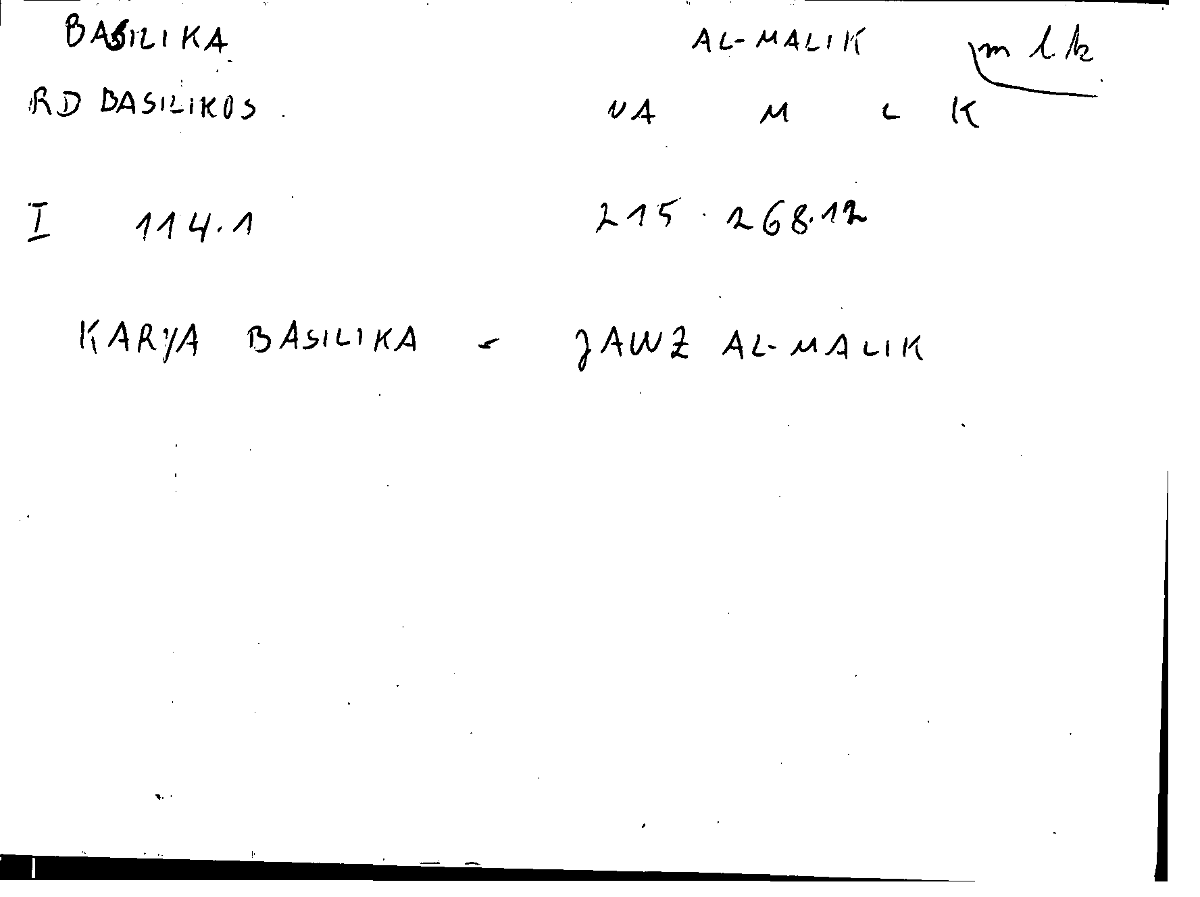 BASILIKA AL-MALIK mlk
RD BASILIKOS. NA M L K
I 114.1 215.268.12
KARYA BASILIKA - JAWZ AL-MALIK